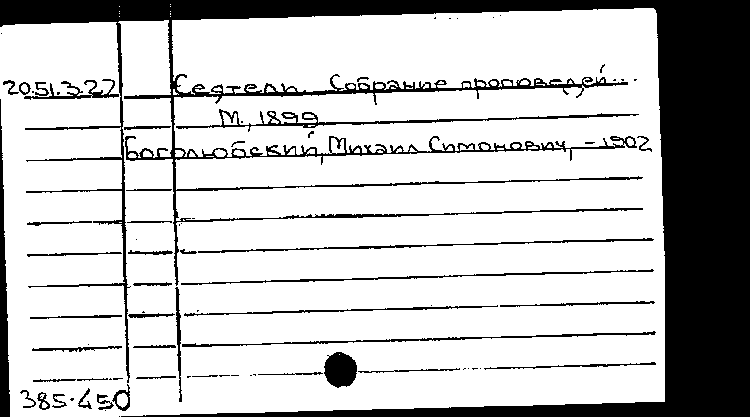 20.51.3.27 Сеятель. Собрание проповедей...
М., 1899
Боголюбский, Михаил Симонович, - 1902
385.450